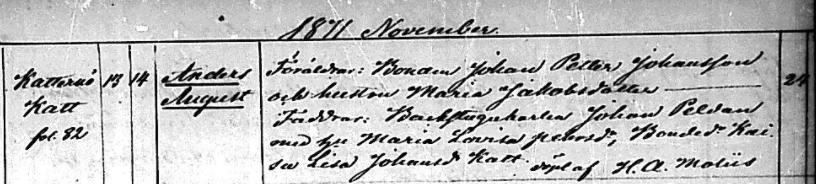 1871 November.
Katternö Katt fol. 82
13 14
Anders August
Föräldrar: Bonden Johan Petter Johansson
och hustru Maria Jakobsdotter
Faddrar: Backstugukarlen Johan Peldan
med hu Maria Lovisa Bonded. Kai-
sa Lisa Johansd. Katt. döpt af H. A. Moliis
24